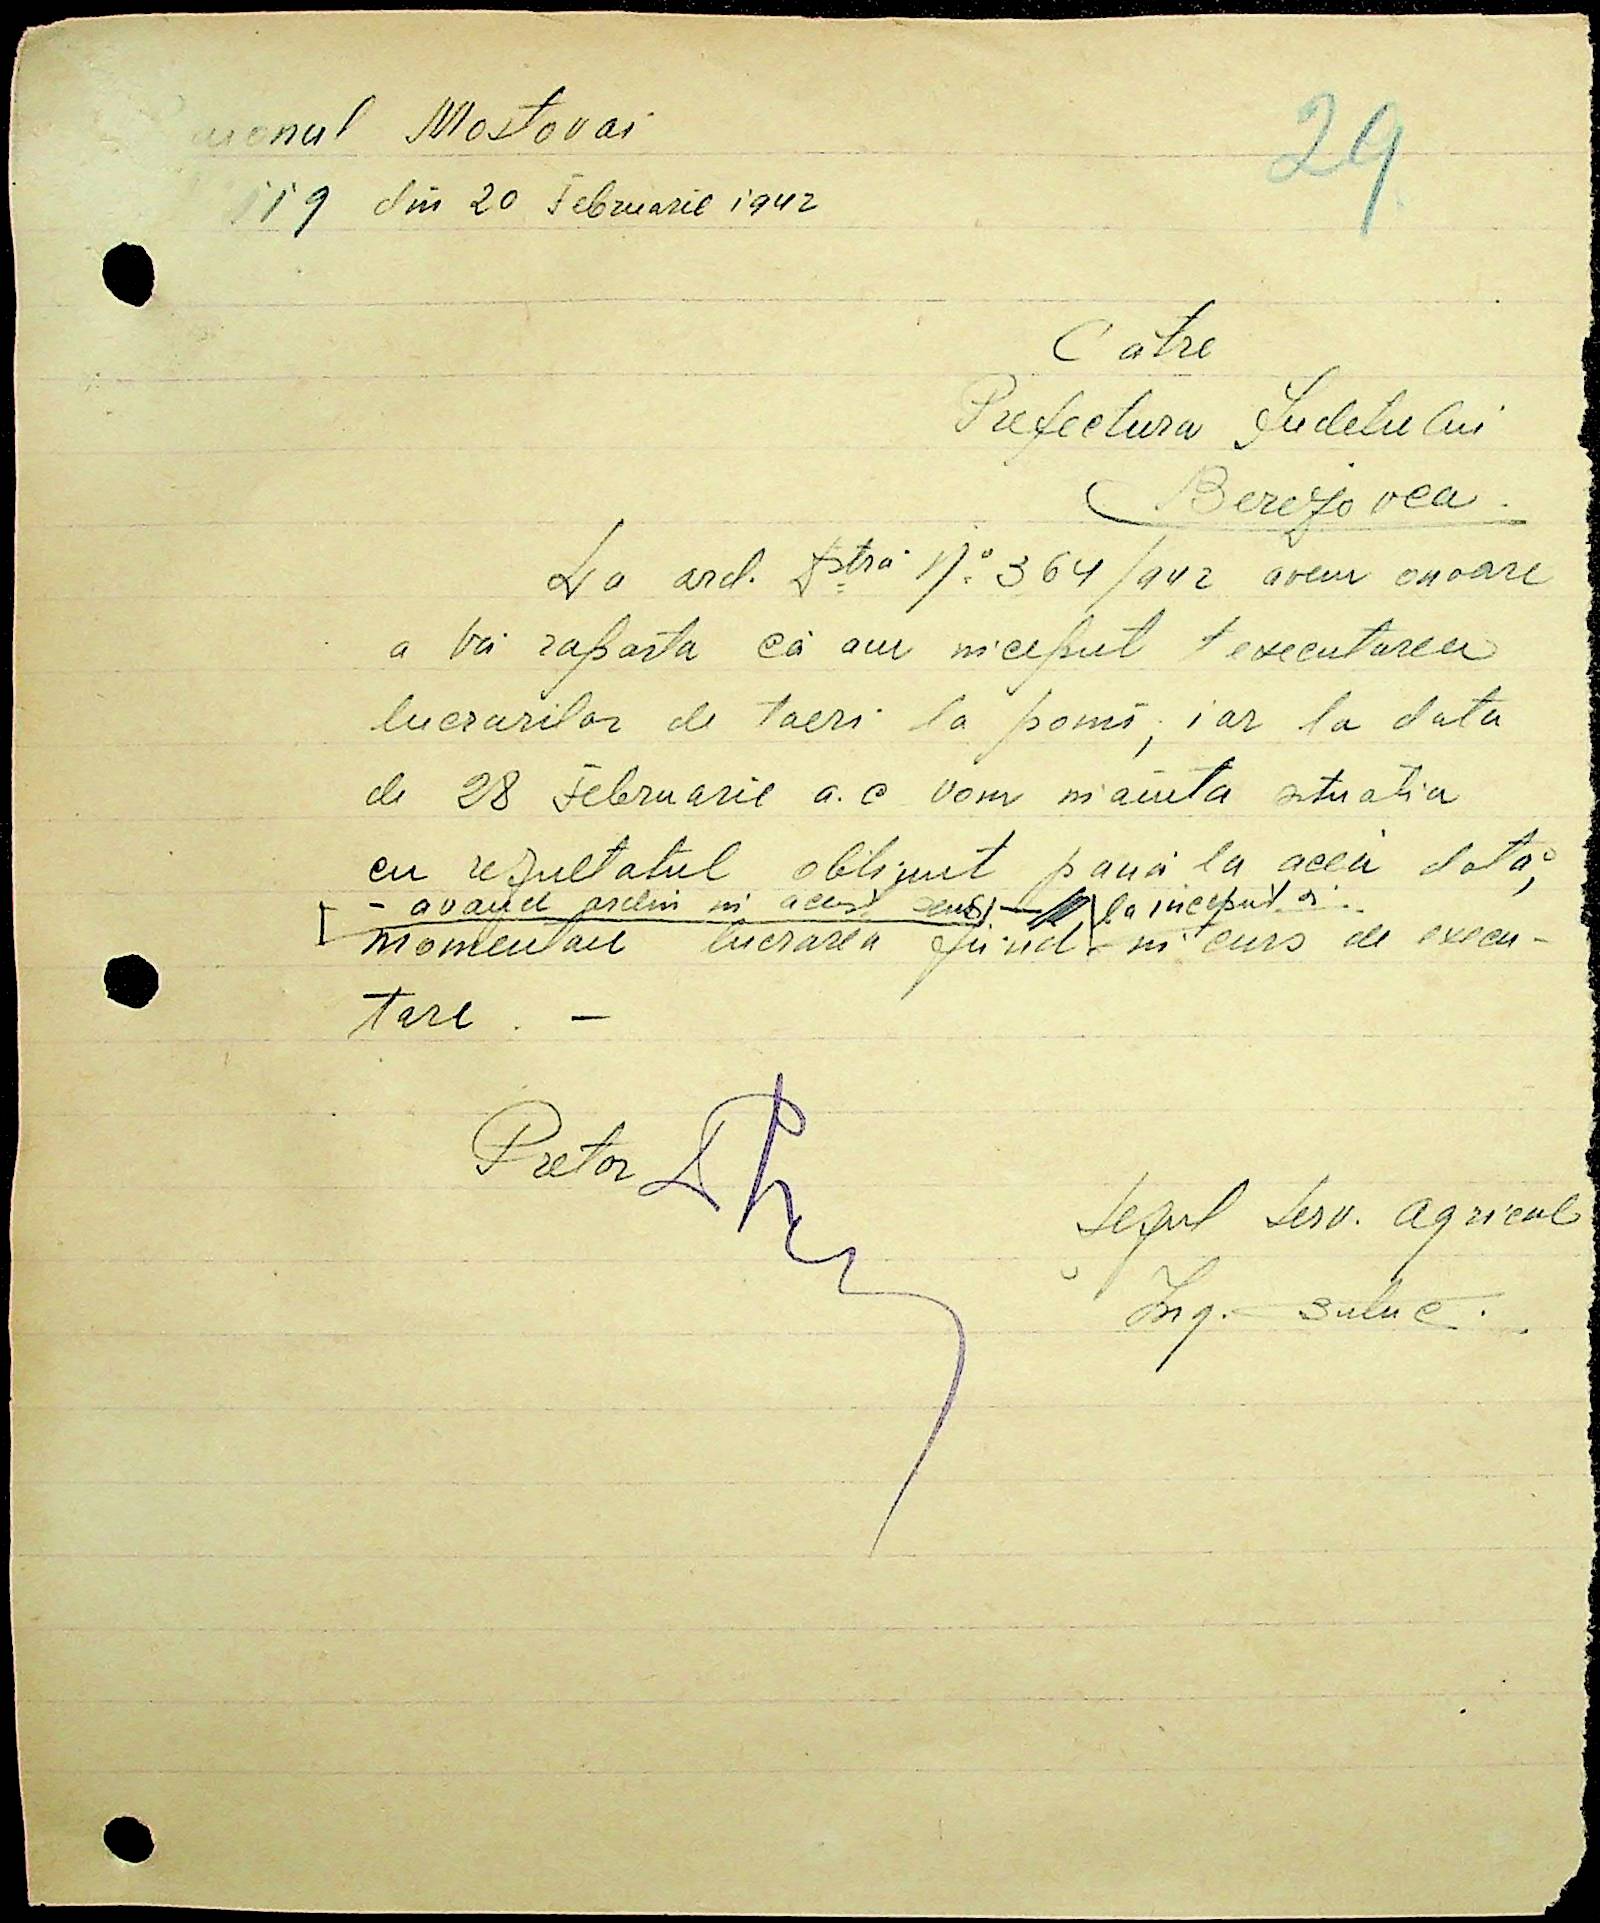 Mostovai
29
119 din 20 Februarie 1942
Către
Prefectura Judetului
Berezovca.
La ord. Dstră No 364/942 avem onoare
a Vă raporta că am inceput executarea
lucrarilor de taeri la pomi, iar la data
de 28 Februarie a.c vom inainta situatia
cu rezultatul obtinut pană la acea dată,
- avand ordin in acest sens, - la inceput si
momentan lucrarea fiind in curs de execu-
tare. -
Pretor
Seful Serv. Agricol
Ing.